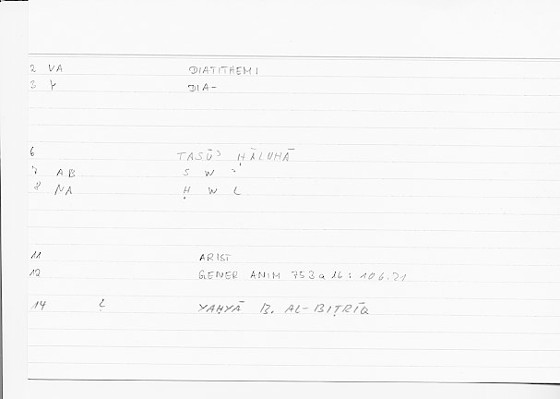 2 VA DIATITHEMI
3 Y DIA-
6 TASŪʾ ḤĀLUHĀ
7 AB S W ʾ
8 NA Ḥ W L
11 ARIST
12 GENER ANIM 753a16: 106.21
14 Ḷ YAḤYĀ B. AL-BIṬRĪQ